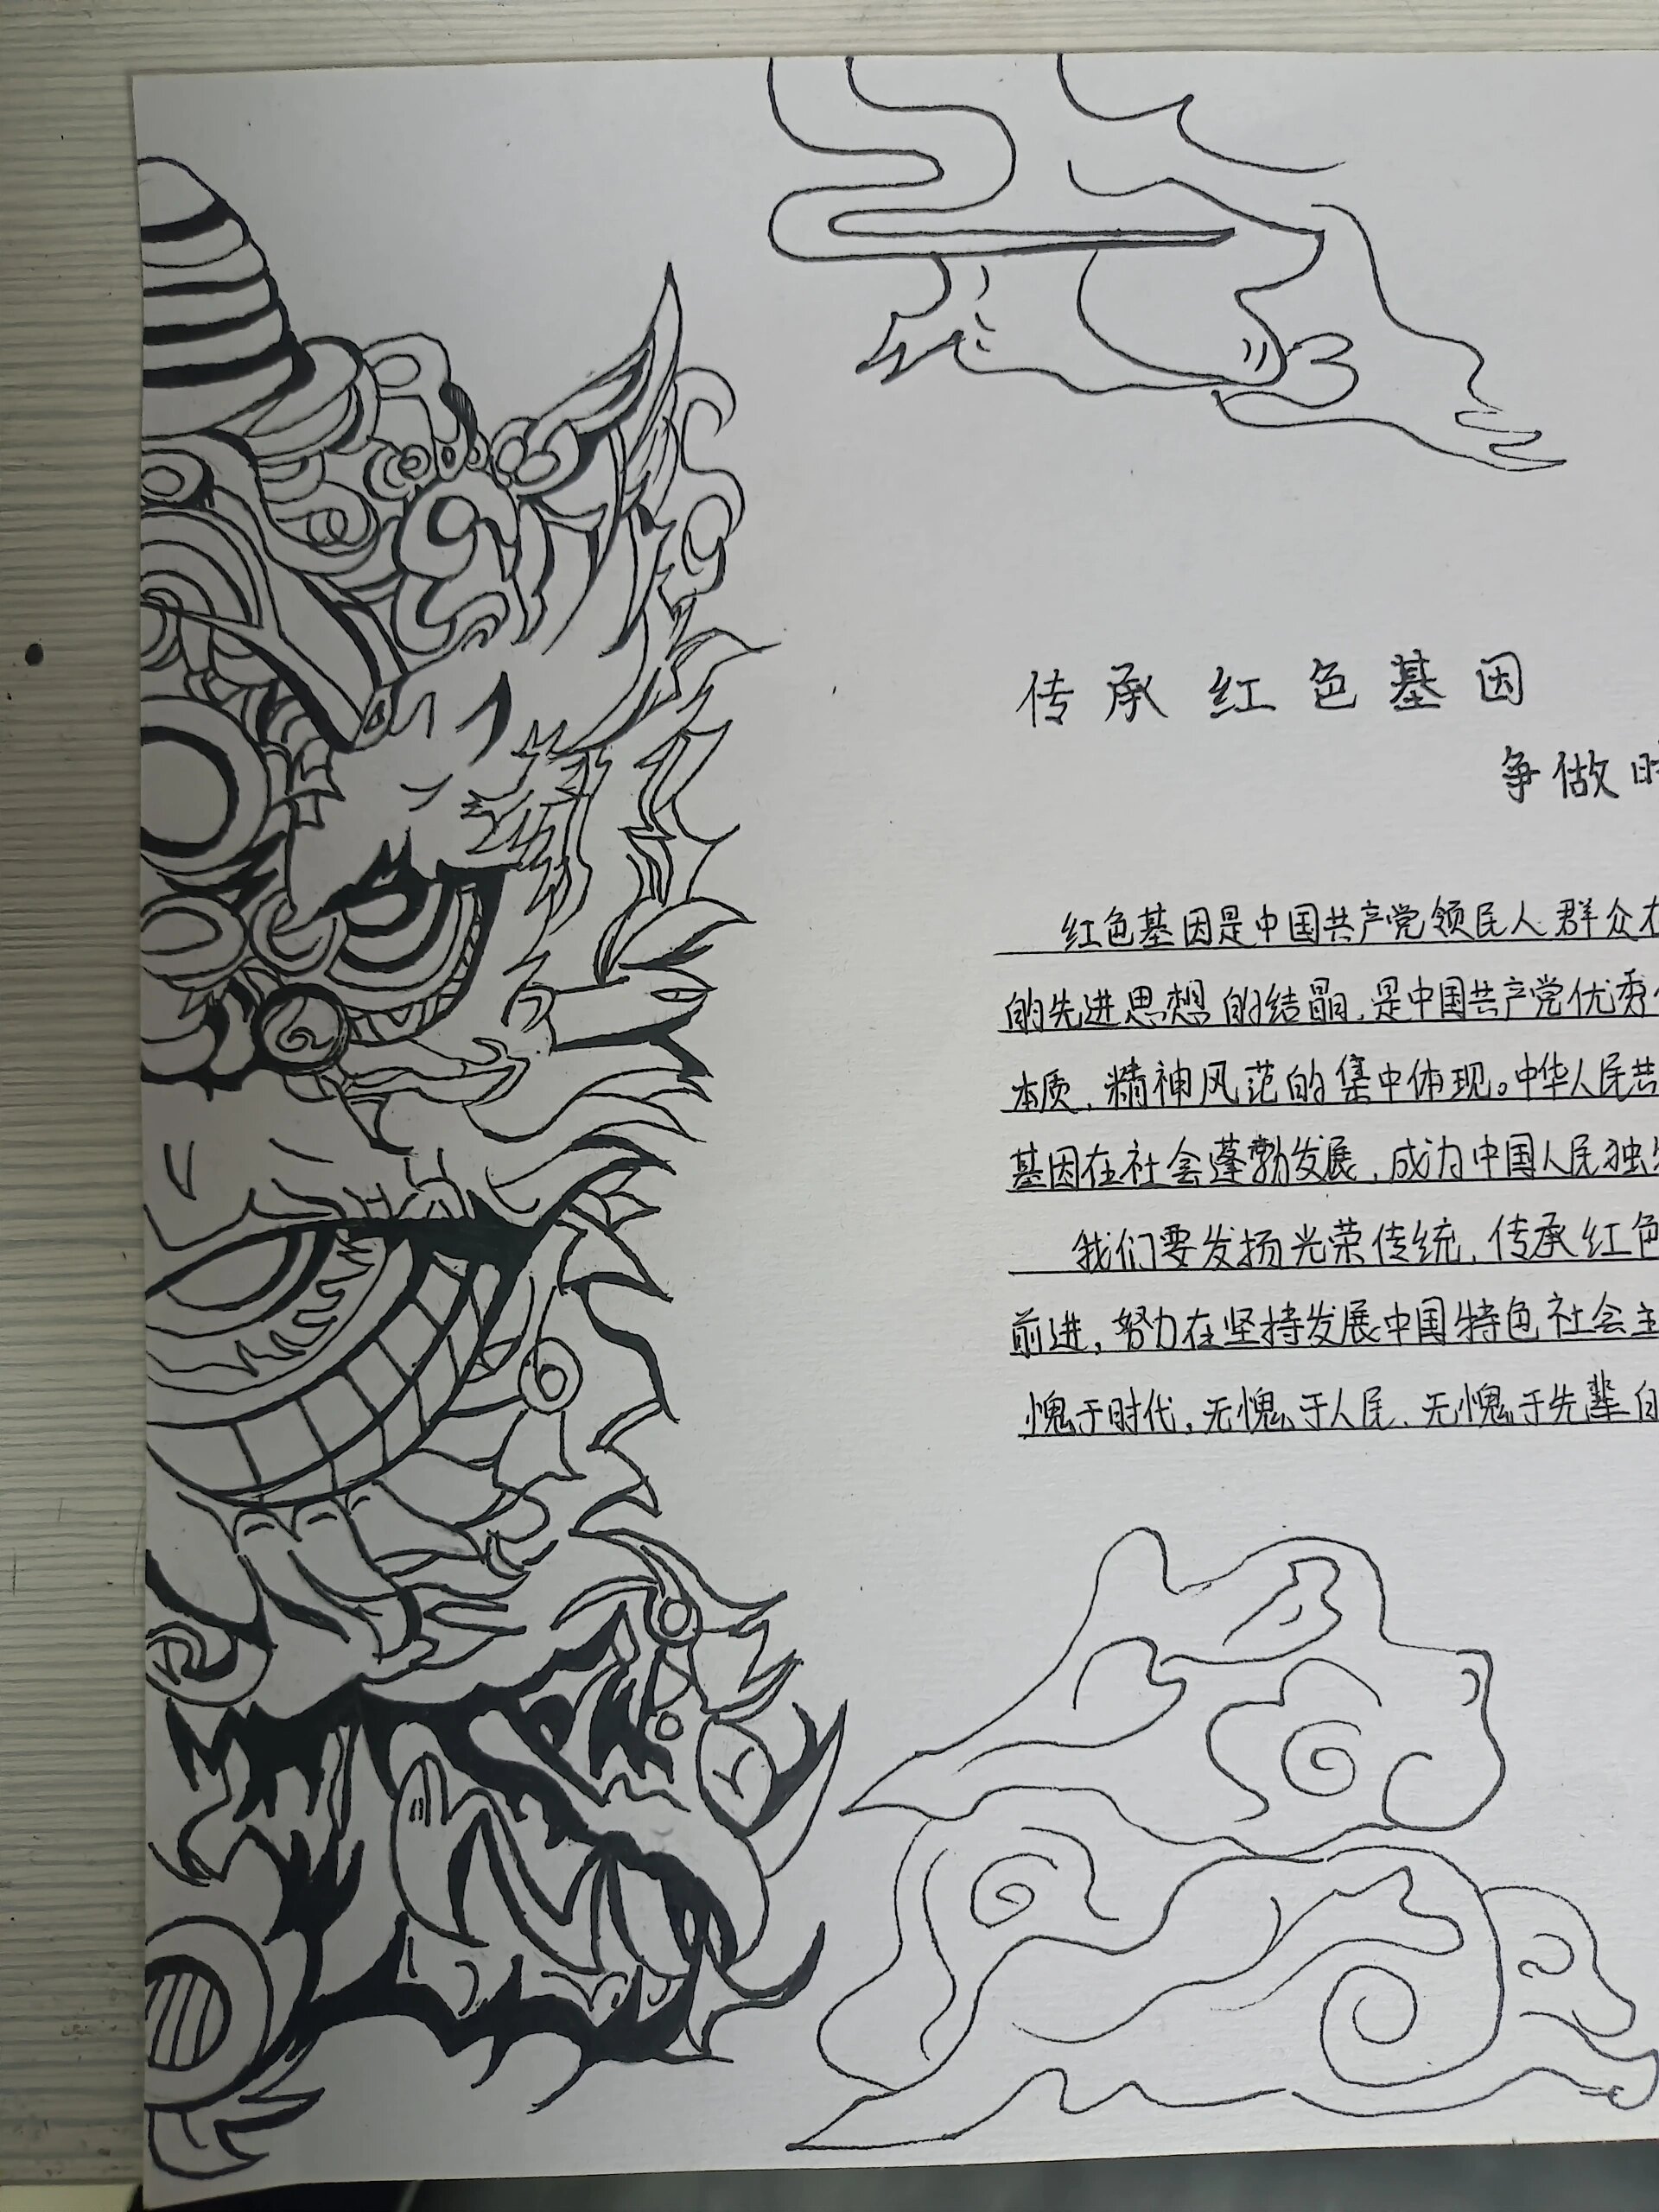 传承红色基因
争做时
红色基因是中国共产党领民人群众在
的先进思想的结晶,是中国共产党优秀
本质,精神风范的集中体现。中华人民共
基因在社会蓬勃发展,成为中国人民独
我们要发扬光荣传统,传承红色
前进,努力在坚持发展中国特色社会主
愧于时代,无愧于人民、无愧于先辈的